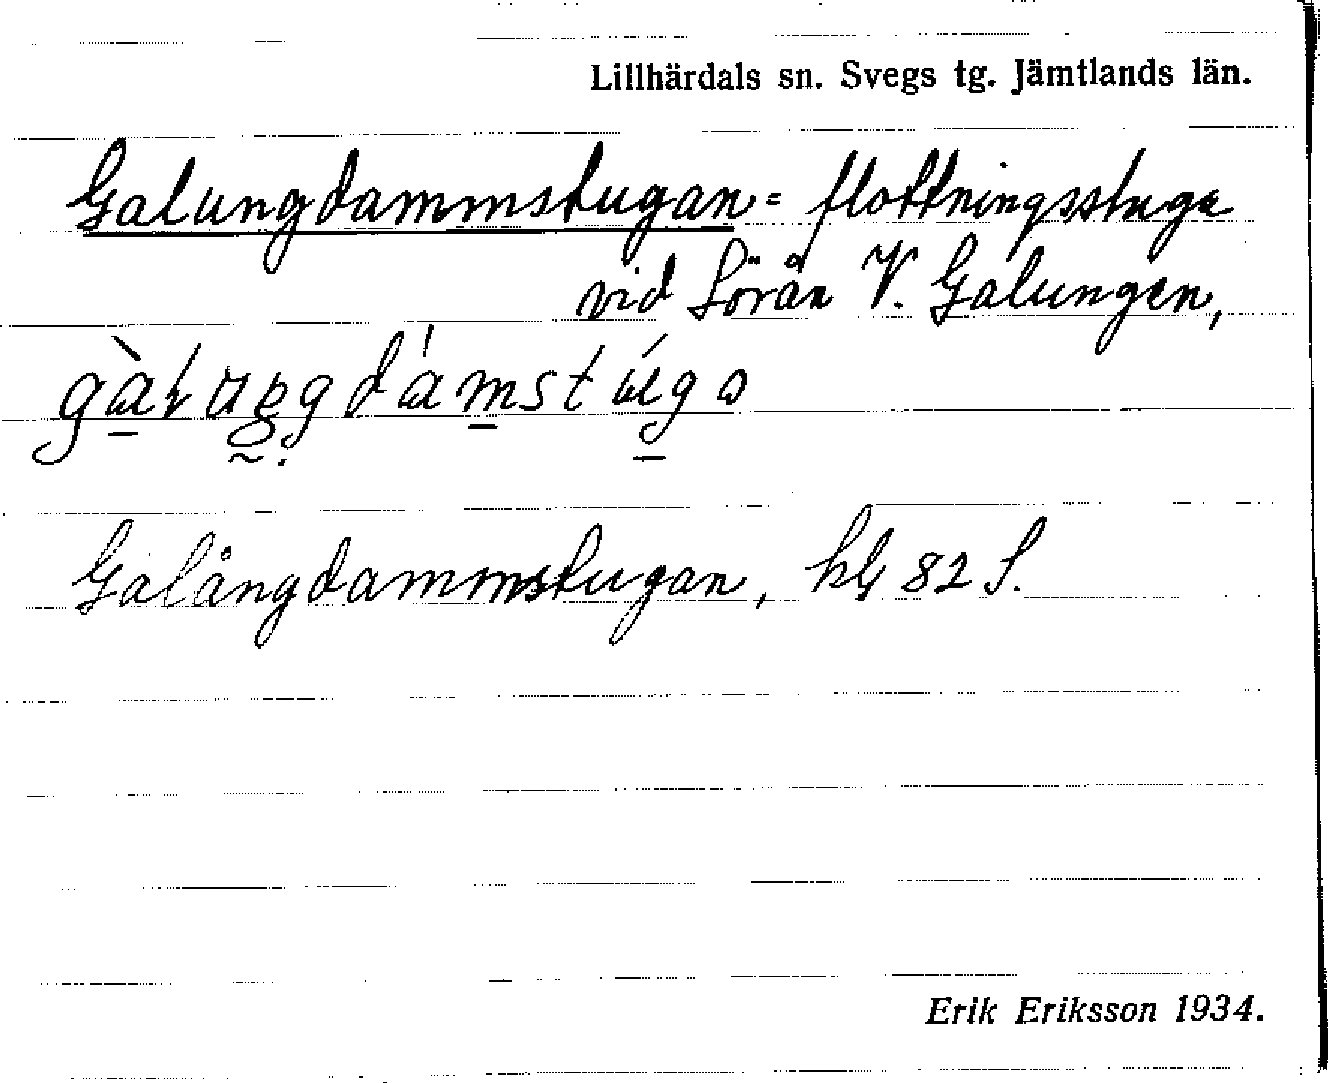 Lillhärdals sn. Svegs tg. Jämtlands län.
Galungdammstugan = flottningsstuga
vid Lörån V. Galungen,
Galångdammstugan, kbl 82 S.
Erik Eriksson 1934.